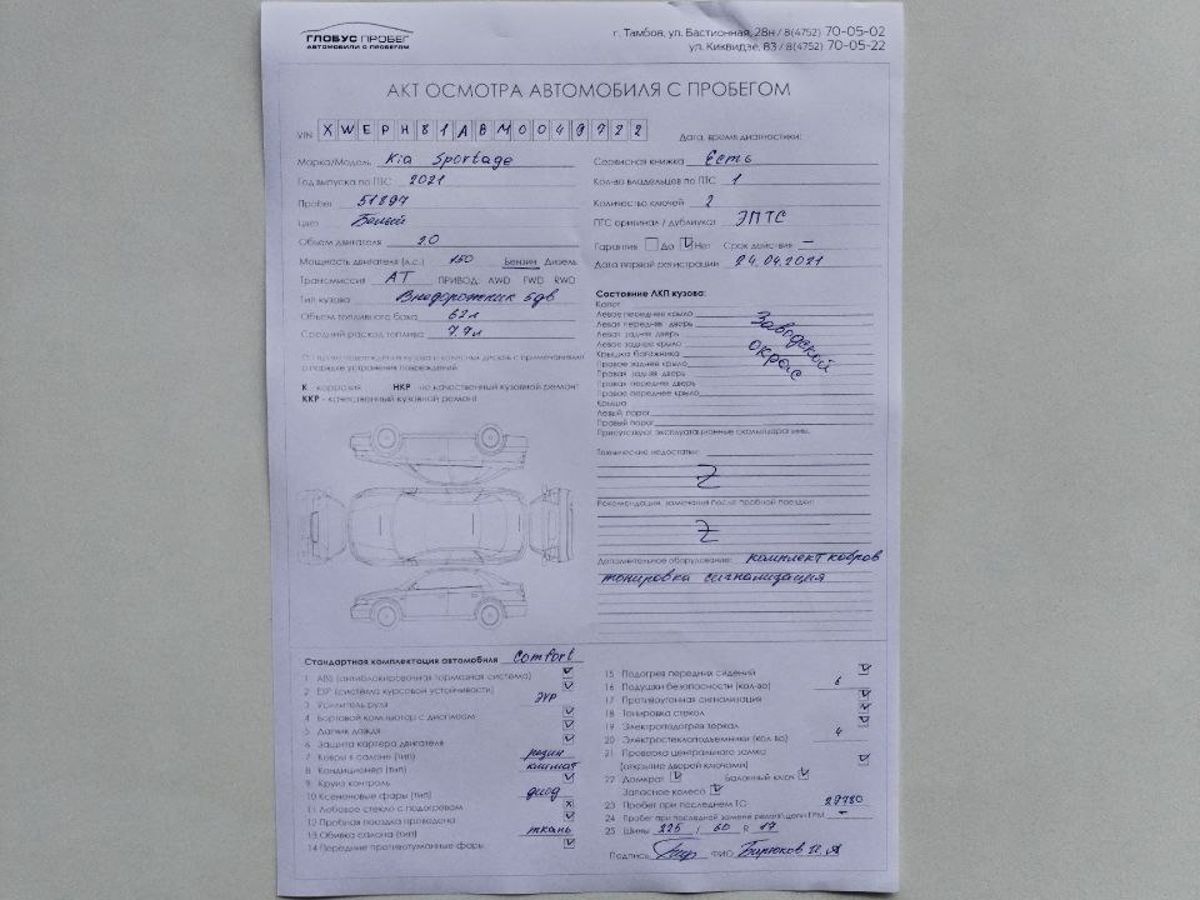 ГЛОБУС ПРОБЕГ
АВТОМОБИЛИ С ПРОБЕГОМ
г. Тамбов, ул. Бастионная, 28н / 8(4752) 70-05-02
ул. Киквидзе, 83 / 8(4752) 70-05-22
АКТ ОСМОТРА АВТОМОБИЛЯ С ПРОБЕГОМ
VIN XWEPH81ABM0049722
Дата, время диагностики:
Марка/Модель Kia Sportage
Год выпуска по ПТС 2021
Пробег 51897
Цвет Белый
Объем двигателя 2.0
Мощность двигателя (л.с.) 150 Бензин Дизель
Трансмиссия AT ПРИВОД: AWD FWD RWD
Тип кузова Внедорожник 5дв
Объем топливного бака 62л
Средний расход топлива 7.9л
Сервисная книжка Есть
Кол-во владельцев по ПТС 1
Количество ключей 2
ПТС оригинал / дубликат ЭПТС
Гарантия Да Нет Срок действия —
Дата первой регистрации 24.04.2021
повреждения кузова и колесных дисков с примечаниями
о порядке устранения повреждений
К - коррозия НКР - не качественный кузовной ремонт
ККР - качественный кузовной ремонт
Состояние ЛКП кузова:
Капот
Левое переднее крыло
Левая передняя дверь
Левая задняя дверь
Левое заднее крыло
Крышка багажника
Правое заднее крыло
Правая задняя дверь
Правая передняя дверь
Правое переднее крыло
Крыша
Левый порог
Правый порог
Заводской
окрас
Присутствуют эксплуатационные сколы/царапины.
Технические недостатки:
Z
Рекомендации, замечания после пробной поездки:
Z
Дополнительное оборудование: комплект ковров
тонировка сигнализация
Стандартная комплектация автомобиля Comfort
1 ABS (антиблокировочная тормозная система)
2 ESP (система курсовой устойчивости)
3 Усилитель руля ЭУР
4 Бортовой компьютер с дисплеем
5 Датчик дождя
6 Защита картера двигателя
7 Ковры в салоне (тип) резин
8 Кондиционер (тип) климат
9 Круиз контроль
10 Ксеноновые фары (тип) диод
11 Лобовое стекло с подогревом
12 Пробная поездка проведена
13 Обивка салона (тип) ткань
14 Передние противотуманные фары
15 Подогрев передних сидений
16 Подушки безопасности (кол-во) 6
17 Противоугонная сигнализация
18 Тонировка стекол
19 Электроподогрев зеркал
20 Электростеклоподъемники (кол-во) 4
21 Проверка центрального замка
(открытие дверей ключами)
22 Домкрат Балонный ключ
Запасное колесо
23 Пробег при последнем ТО 29780
24 Пробег при последней замене ремня/цепи ГРМ —
25 Шины 225 / 60 R 17
Подпись ФИО Бирюков И.А